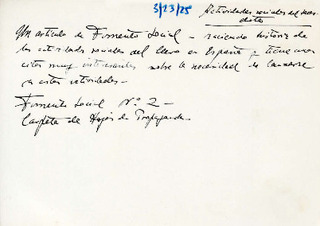 3/23/25
Actividades sociales del
Un artículo de Fomento Social - haciendo historia de
las actividades sociales del clero en España y tiene unas
citas muy interesantes sobre la necesidad de lanzarse
a estas actividades -
Fomento Social Nº 2 -
Carpeta de Hojas de Propaganda.